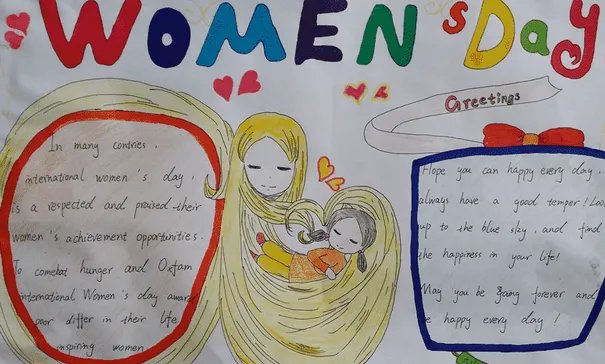 WOMEN'sDay
Greetings
In many contries,
international women's day,
is a respected and praised their
women's achievement opportunities.
To comebat hunger and Oxfam
international Women's day award
poor differ in their life
inspiring women
Hope you can happy every day,
always have a good temper! Look
up to the blue sky, and find
the happiness in your life!
May you be going forever and
be happy every day!